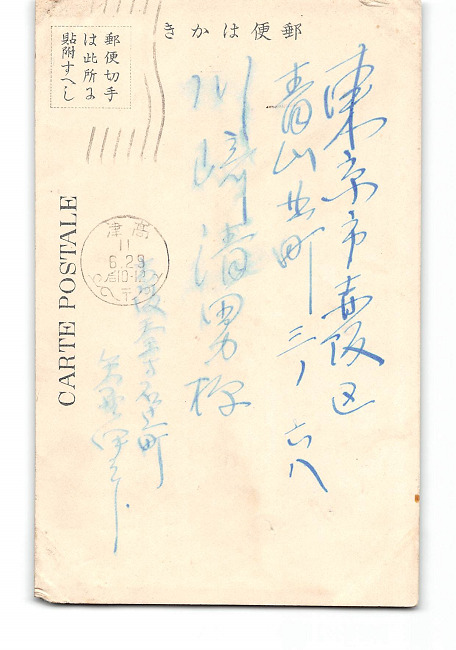 きかは便郵
郵便切手
は此所に
貼附すへし
CARTE POSTALE
東京市赤阪区
青山北町三ノ六八
川崎清男様
津高
11
6.29
后10-12